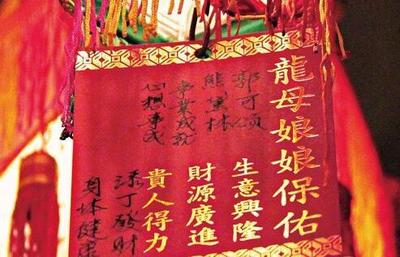 龍母娘娘保佑
郭可頌
生意興隆
熊黛林
財源廣進
事業成就
貴人得力
心想事成
添丁發財
身体健康